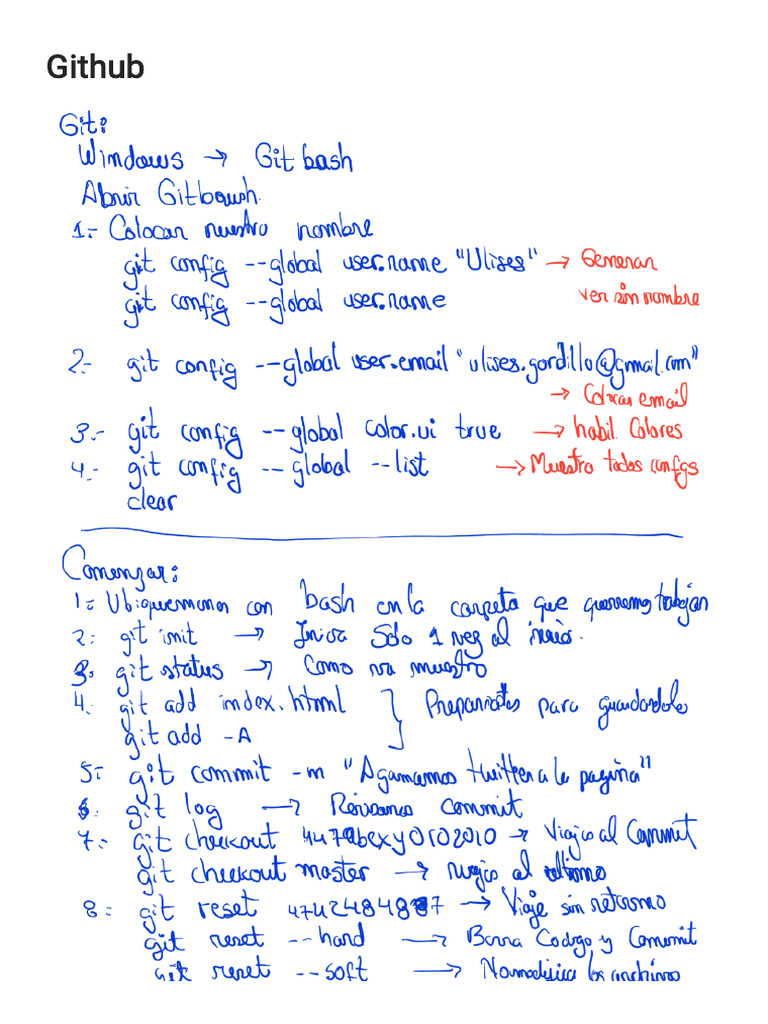 Github
Git:
Windows → Git bash
Abrir Gitbash.
1.- Colocar nuestro nombre
git config --global user.name "Ulises" → Generar
git config --global user.name ver sin nombre
2.- git config --global user.email "ulises.gordillo@gmail.com"
→ Colocar email
3.- git config --global color.ui true → habil. Colores
4.- git config --global --list → Muestra todas configs
clear
Comenzar:
1.- Ubiquemonos con bash en la carpeta que queremos trabajar
2.- git init → Inicia Solo 1 vez al inicio.
3.- git status → Como va nuestro
4.- git add index.html } Prepararlos para guardandole
git add -A
5.- git commit -m "Agamamos twitter a la pagina"
6.- git log → Revisamos commit
7.- git checkout → Viajas al Commit
git checkout master → viajas al ultimo
8.- git reset → Viaje sin retorno
git reset --hard → Borra Codigo y Commit
git reset --soft → No modifica los archivos